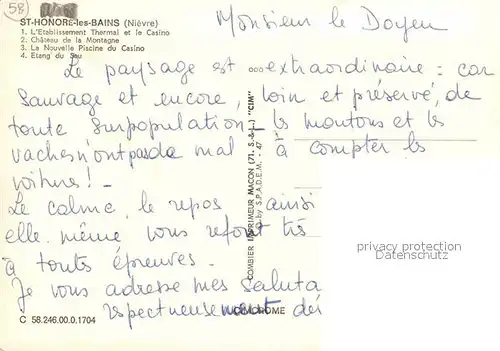 58
ST-HONORÉ-les-BAINS (Nièvre)
1. L'Etablissement Thermal et le Casino
2. Château de la Montagne
3. La Nouvelle Piscine du Casino
4. Etang du Seu
Monsieur le Doyen
Le paysage est extraordinaire : car
sauvage et encore, loin et préservé, de
toute surpopulation _ les moutons et les
vaches n'ont pas de mal à compter les
voitures ! _
Le calme, le repos ainsi
elle même, vous refont très
à toutes épreuves.
Je vous adresse mes saluta
respectueusement dés
COMBIER IMPRIMEUR MACON (71. S.-&-L.) "CIM"
by S.P.A.D.E.M. - 47
COMDROME
C 58.246.00.0.1704
privacy protection
Datenschutz